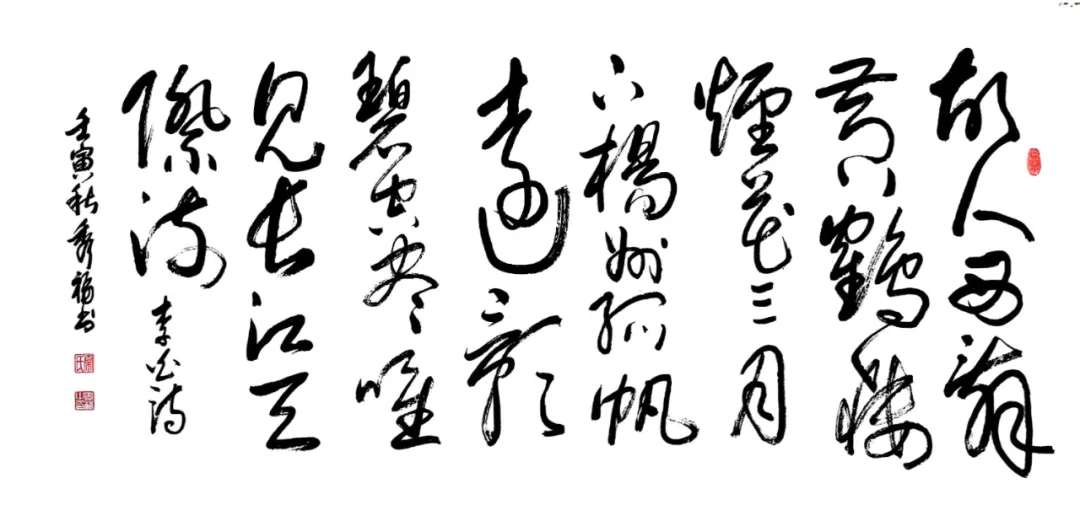 故人西辞
黄鹤楼
煙花三月
下楊州孤帆
遠影
碧空尽唯
见长江天
際流 李白诗
壬寅秋秀福书